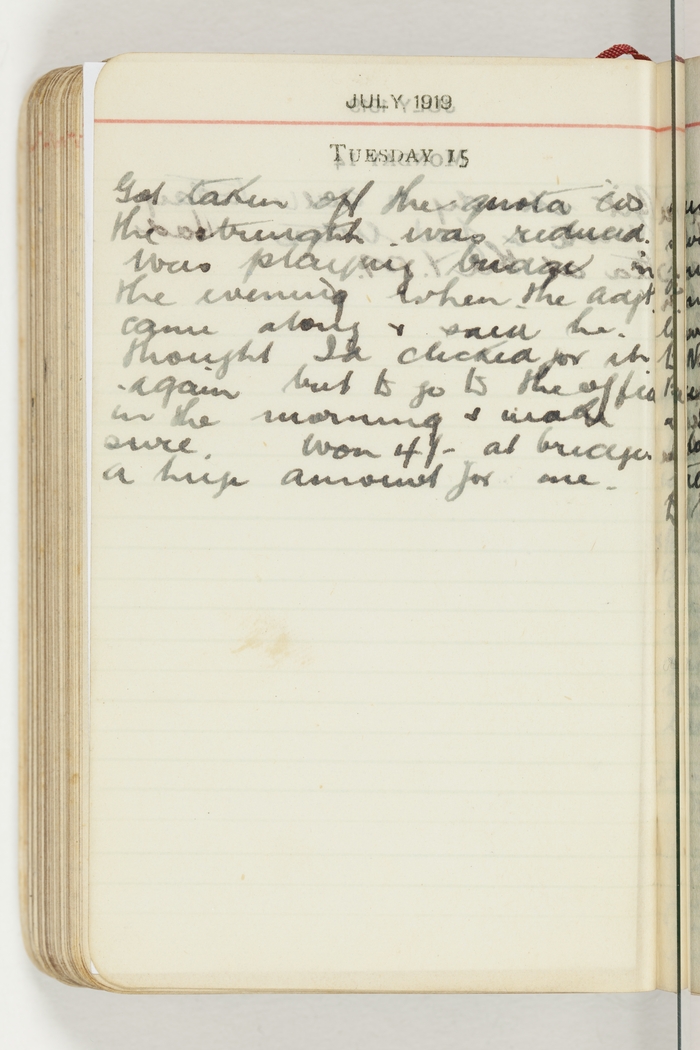 JULY 1919
TUESDAY 15
Got taken off the quota as
the strength was reduced.
Was playing bridge in
the evening when the adjt.
came along & said he
thought I'd clicked for it
again but to go to the office
in the morning & make
sure. Won 4/- at bridge
a huge amount for me.